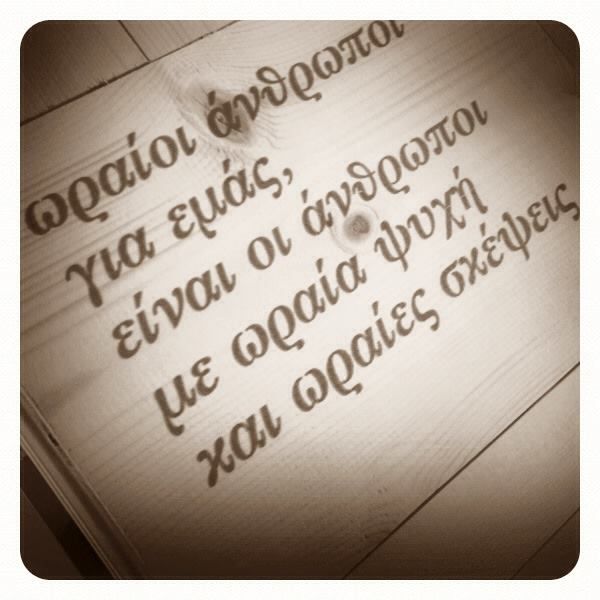 ωραίοι άνθρωποι
για εμάς,
είναι οι άνθρωποι
με ωραία ψυχή
και ωραίες σκέψεις